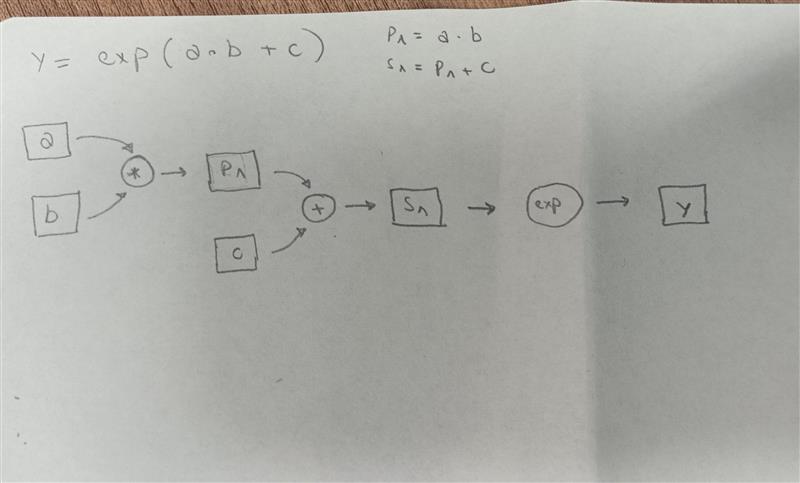 y = exp(a·b + c)
P1 = a·b
S1 = P1 + c
a
*
b
P1
+
c
S1
exp
y